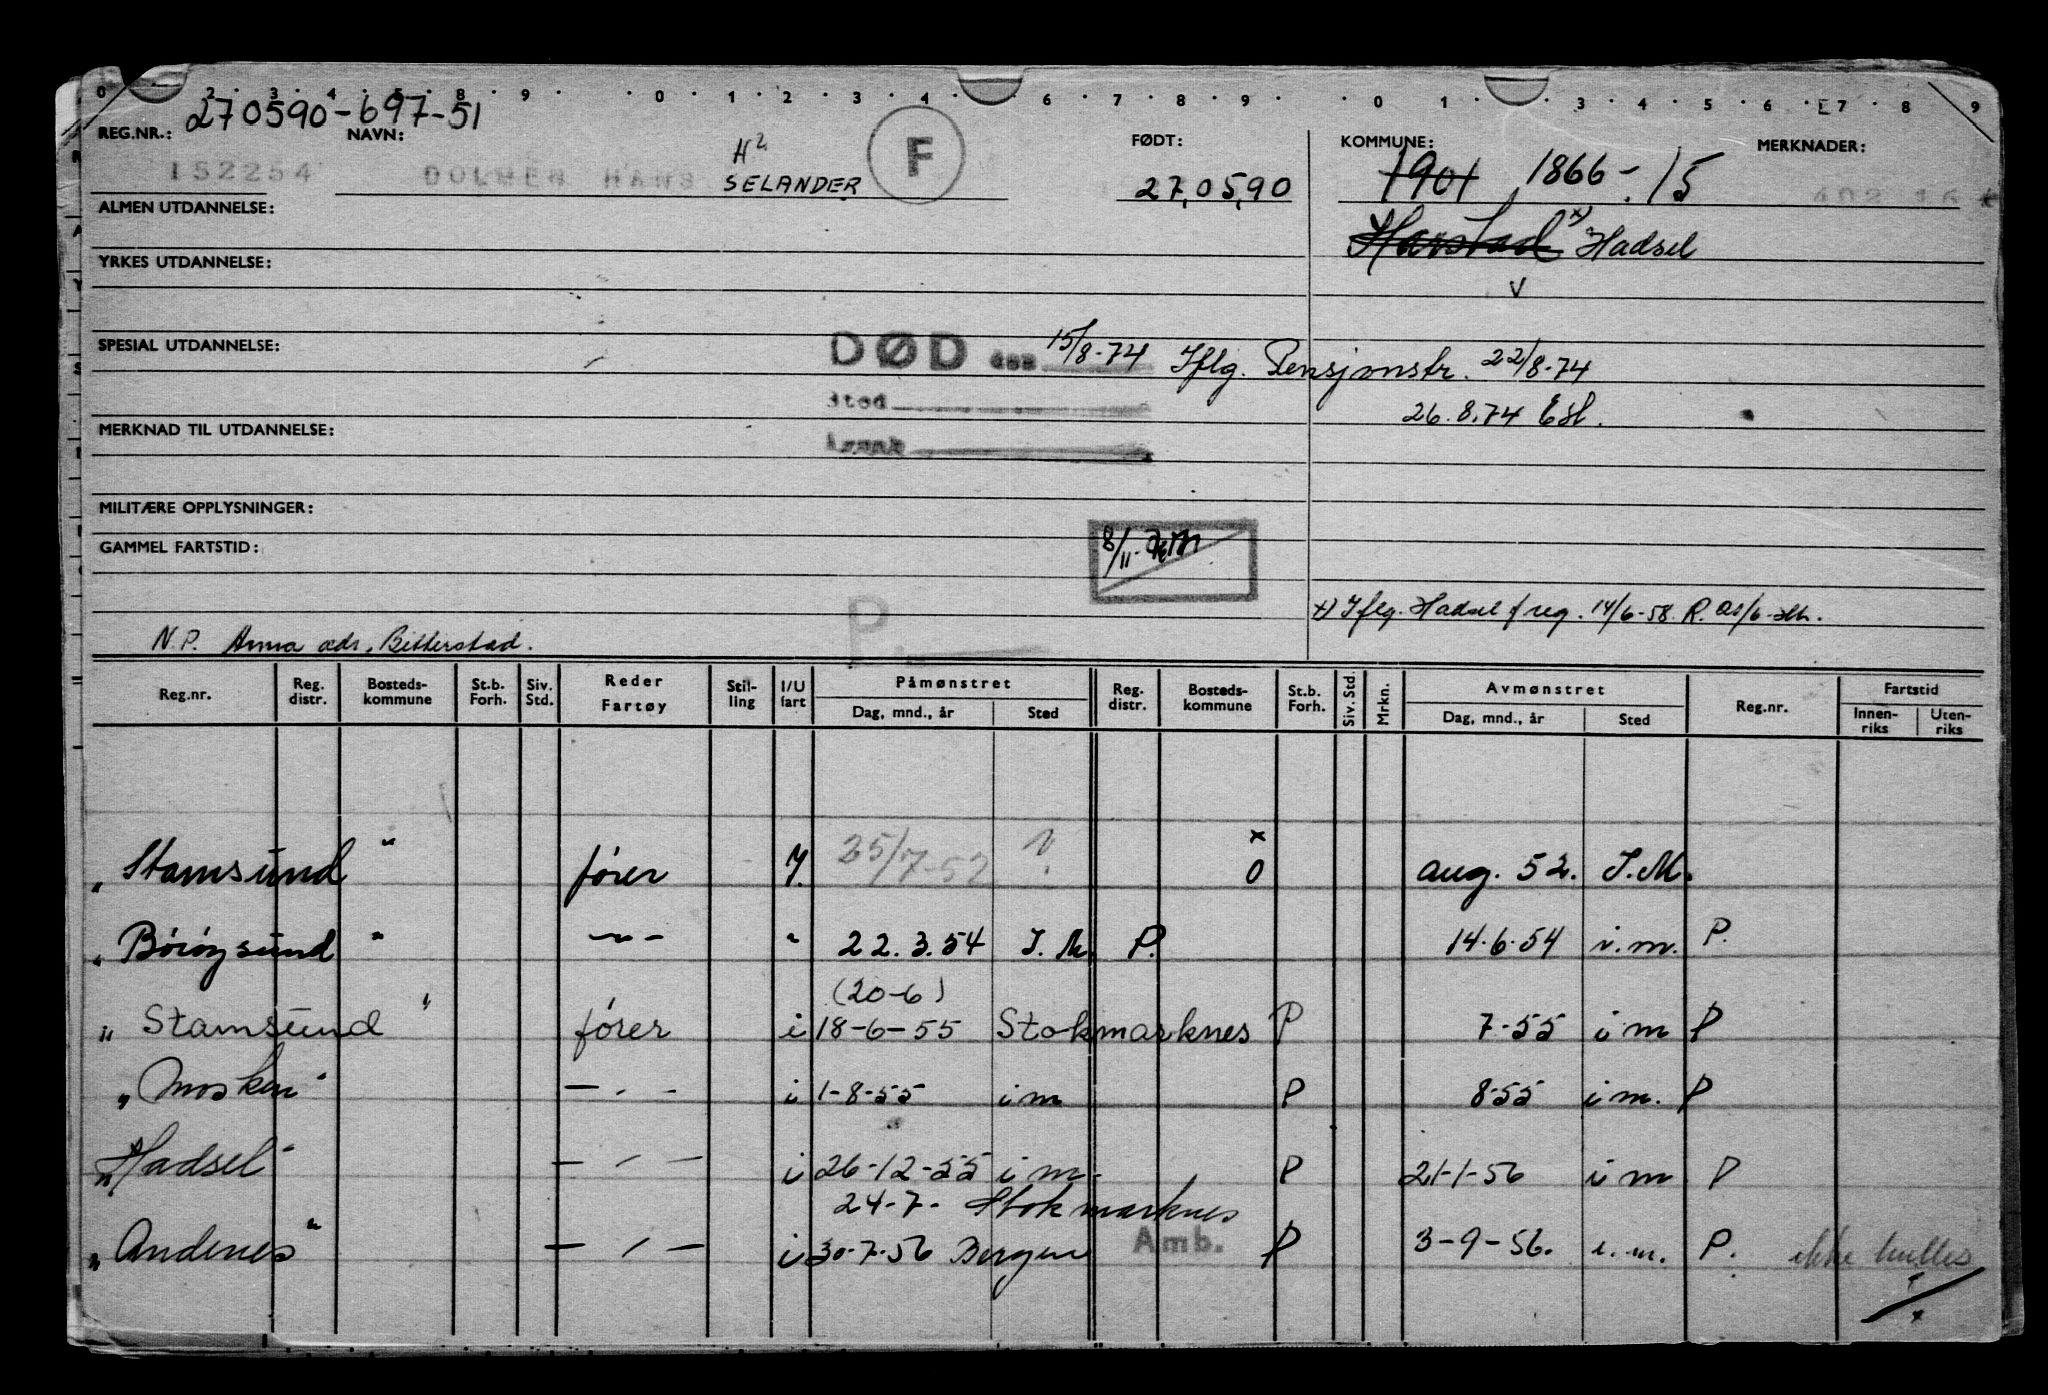 0 2 3 4 5 8 9 0 1 2 3 4 6 7 8 9 0 1 3 4 5 6 7 8 9
270590-697-51
REG.NR.: NAVN: H² F FØDT: KOMMUNE: MERKNADER:
152254 DOLMEN HANS SELANDER 27,05,90 1901 1866-15 402 16
ALMEN UTDANNELSE:
Harstad x) Hadsel
YRKES UTDANNELSE:
V
SPESIAL UTDANNELSE: DØD den 15/8-74 Iflg. Pensjonstr. 22/8-74
Sted 26.8.74
MERKNAD TIL UTDANNELSE:
MILITÆRE OPPLYSNINGER:
GAMMEL FARTSTID: 8/11
P.
x) Iflg. Hadsel f reg. 14/6-58. R.
N.P. Anna adr, Bitterstad.
Reg.nr. Reg. distr. Bosteds- kommune St.b. Forh. Siv. Std. Reder Fartøy Stil- ling I/U fart Påmønstret Dag, mnd., år Sted Reg. distr. Bosteds- kommune St.b. Forh. Siv. Std. Mrkn. Avmønstret Dag, mnd., år Sted Reg.nr. Fartstid Innen- riks Uten- riks
x
"Stamsund" fører I. 25/7-52 0 aug. 52. I.M.
"Børøysund" -"- " 22.3.54 I.M. P. 14.6.54 i.m. P.
(20-6)
"Stamsund" fører i 18-6-55 Stokmarknes P 7-55 i m P
"Mosken" -"- i 1-8-55 i m P 8-55 i m. P
"Hadsel" -"- i 26-12-55 i m. P 21-1-56 i m P
24-7- Stokmarknes
"Andenes" -"- i 30-7-56 Bergen Amb. P 3-9-56. i.m. P. ikke hulles